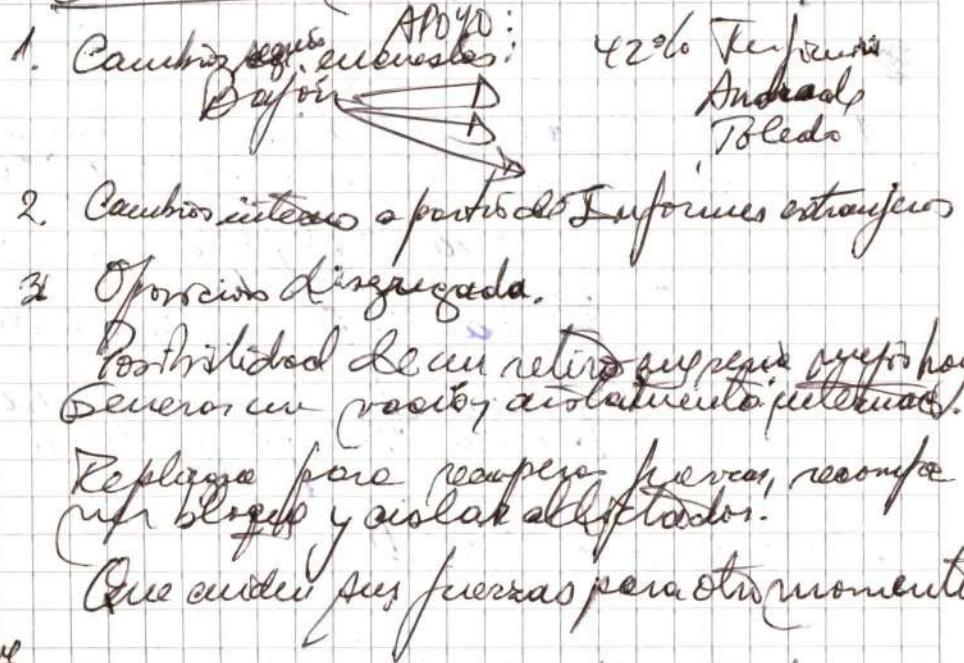 APOYO:
1. Cambios según encuestas: 42% Fujimori
Bajón Andrade
Toledo
2. Cambios internos a partir de Informes extranjeros
3. Oposición disgregada.
Posibilidad de un retiro
Generar un vacío y aislamiento internac.
Repliegue para recuperar fuerzas,
un bloque y aislar al dictador.
Que cuiden sus fuerzas para otro momento